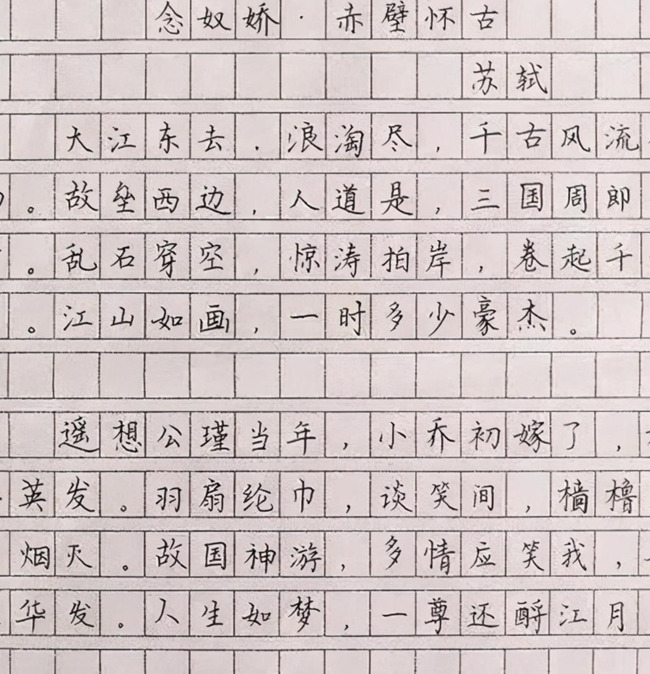 念奴娇·赤壁怀古
苏轼
大江东去，浪淘尽，千古风流
。故垒西边，人道是，三国周郎
。乱石穿空，惊涛拍岸，卷起千
。江山如画，一时多少豪杰。
遥想公瑾当年，小乔初嫁了，
英发。羽扇纶巾，谈笑间，樯橹
烟灭。故国神游，多情应笑我，
华发。人生如梦，一尊还酹江月